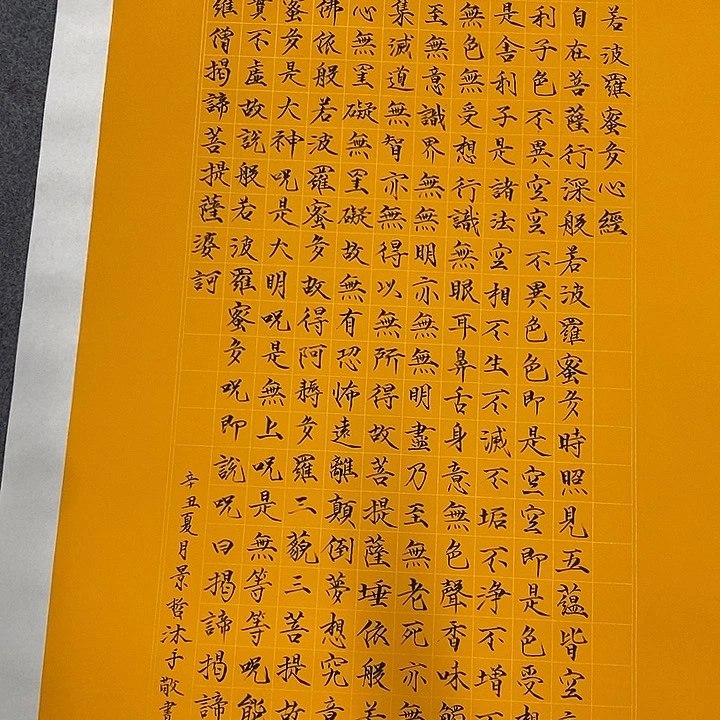 若波羅蜜多心經
自在菩薩行深般若波羅蜜多時照見五蘊皆空
利子色不異空空不異色色即是空空即是色受想
是舍利子是諸法空相不生不滅不垢不浄不增不
無色無受想行識無眼耳鼻舌身意無色聲香味觸
至無意識界無無明亦無無明盡乃至無老死亦無
集滅道無智亦無得以無所得故菩提薩埵依般若
心無罣礙無罣礙故無有恐怖遠離顛倒夢想究竟
佛依般若波羅蜜多故得阿耨多羅三藐三菩提故
蜜多是大神呪是大明呪是無上呪是無等等呪能
實不虛故說般若波羅蜜多呪即說呪曰揭諦揭諦
羅僧揭諦菩提薩婆訶
辛丑夏月景哲沐手敬書